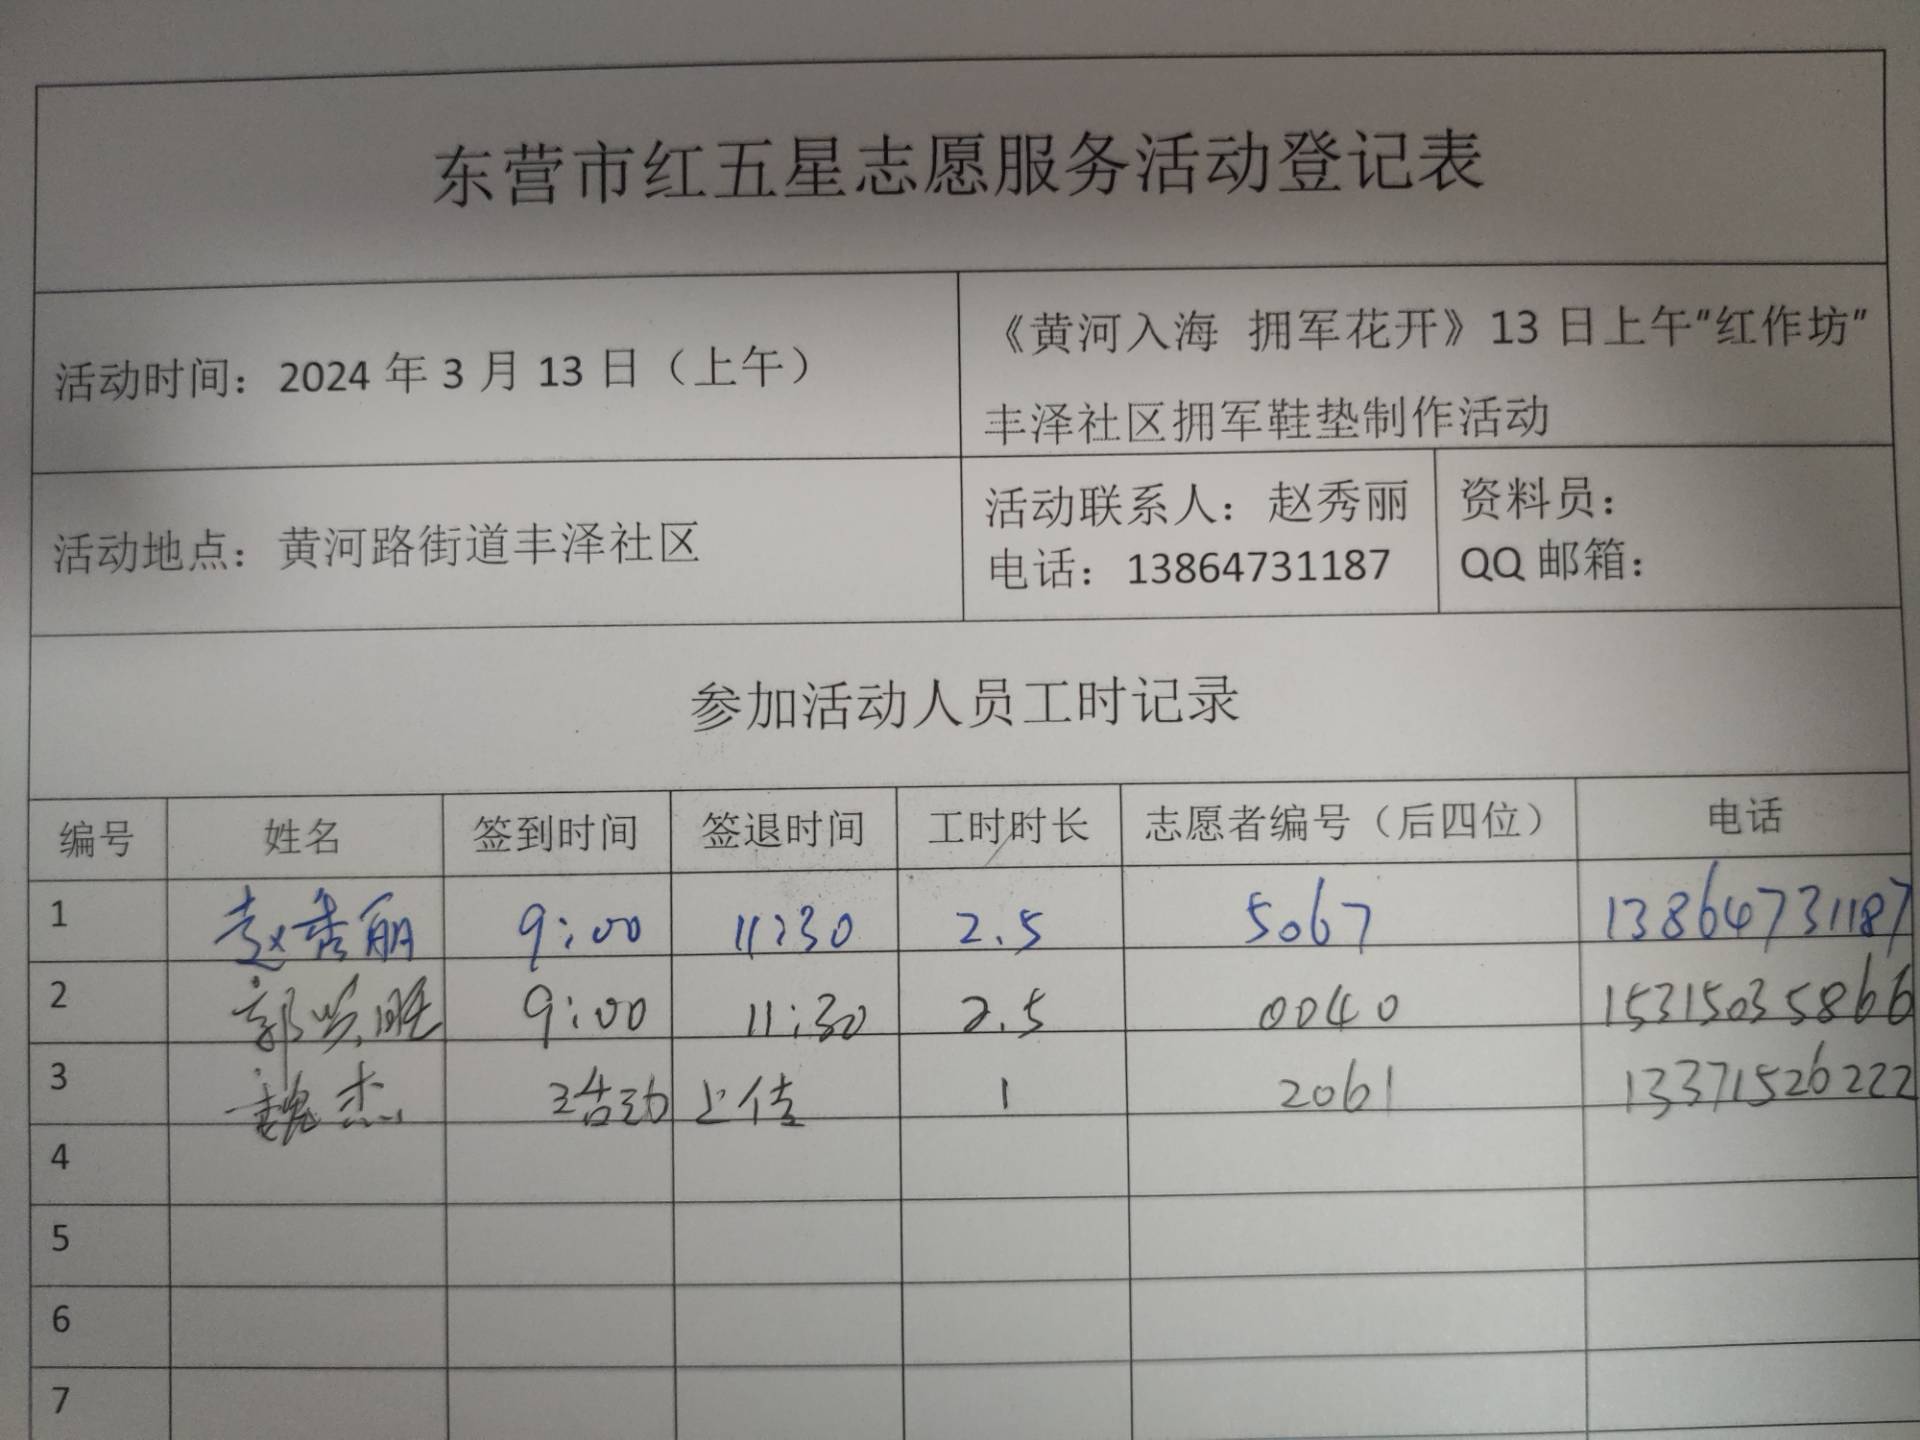 东营市红五星志愿服务活动登记表
活动时间：2024年3月13日（上午）
《黄河入海 拥军花开》13日上午"红作坊"
丰泽社区拥军鞋垫制作活动
活动地点：黄河路街道丰泽社区
活动联系人：赵秀丽
电话：13864731187
资料员：
QQ邮箱：
参加活动人员工时记录
编号 姓名 签到时间 签退时间 工时时长 志愿者编号（后四位） 电话
1 赵秀丽 9:00 11:30 2.5 5067 13864731187
2 郭兴旺 9:00 11:30 2.5 0040 15315035866
3 魏杰 活动 上传 1 2061 13371526222
4
5
6
7